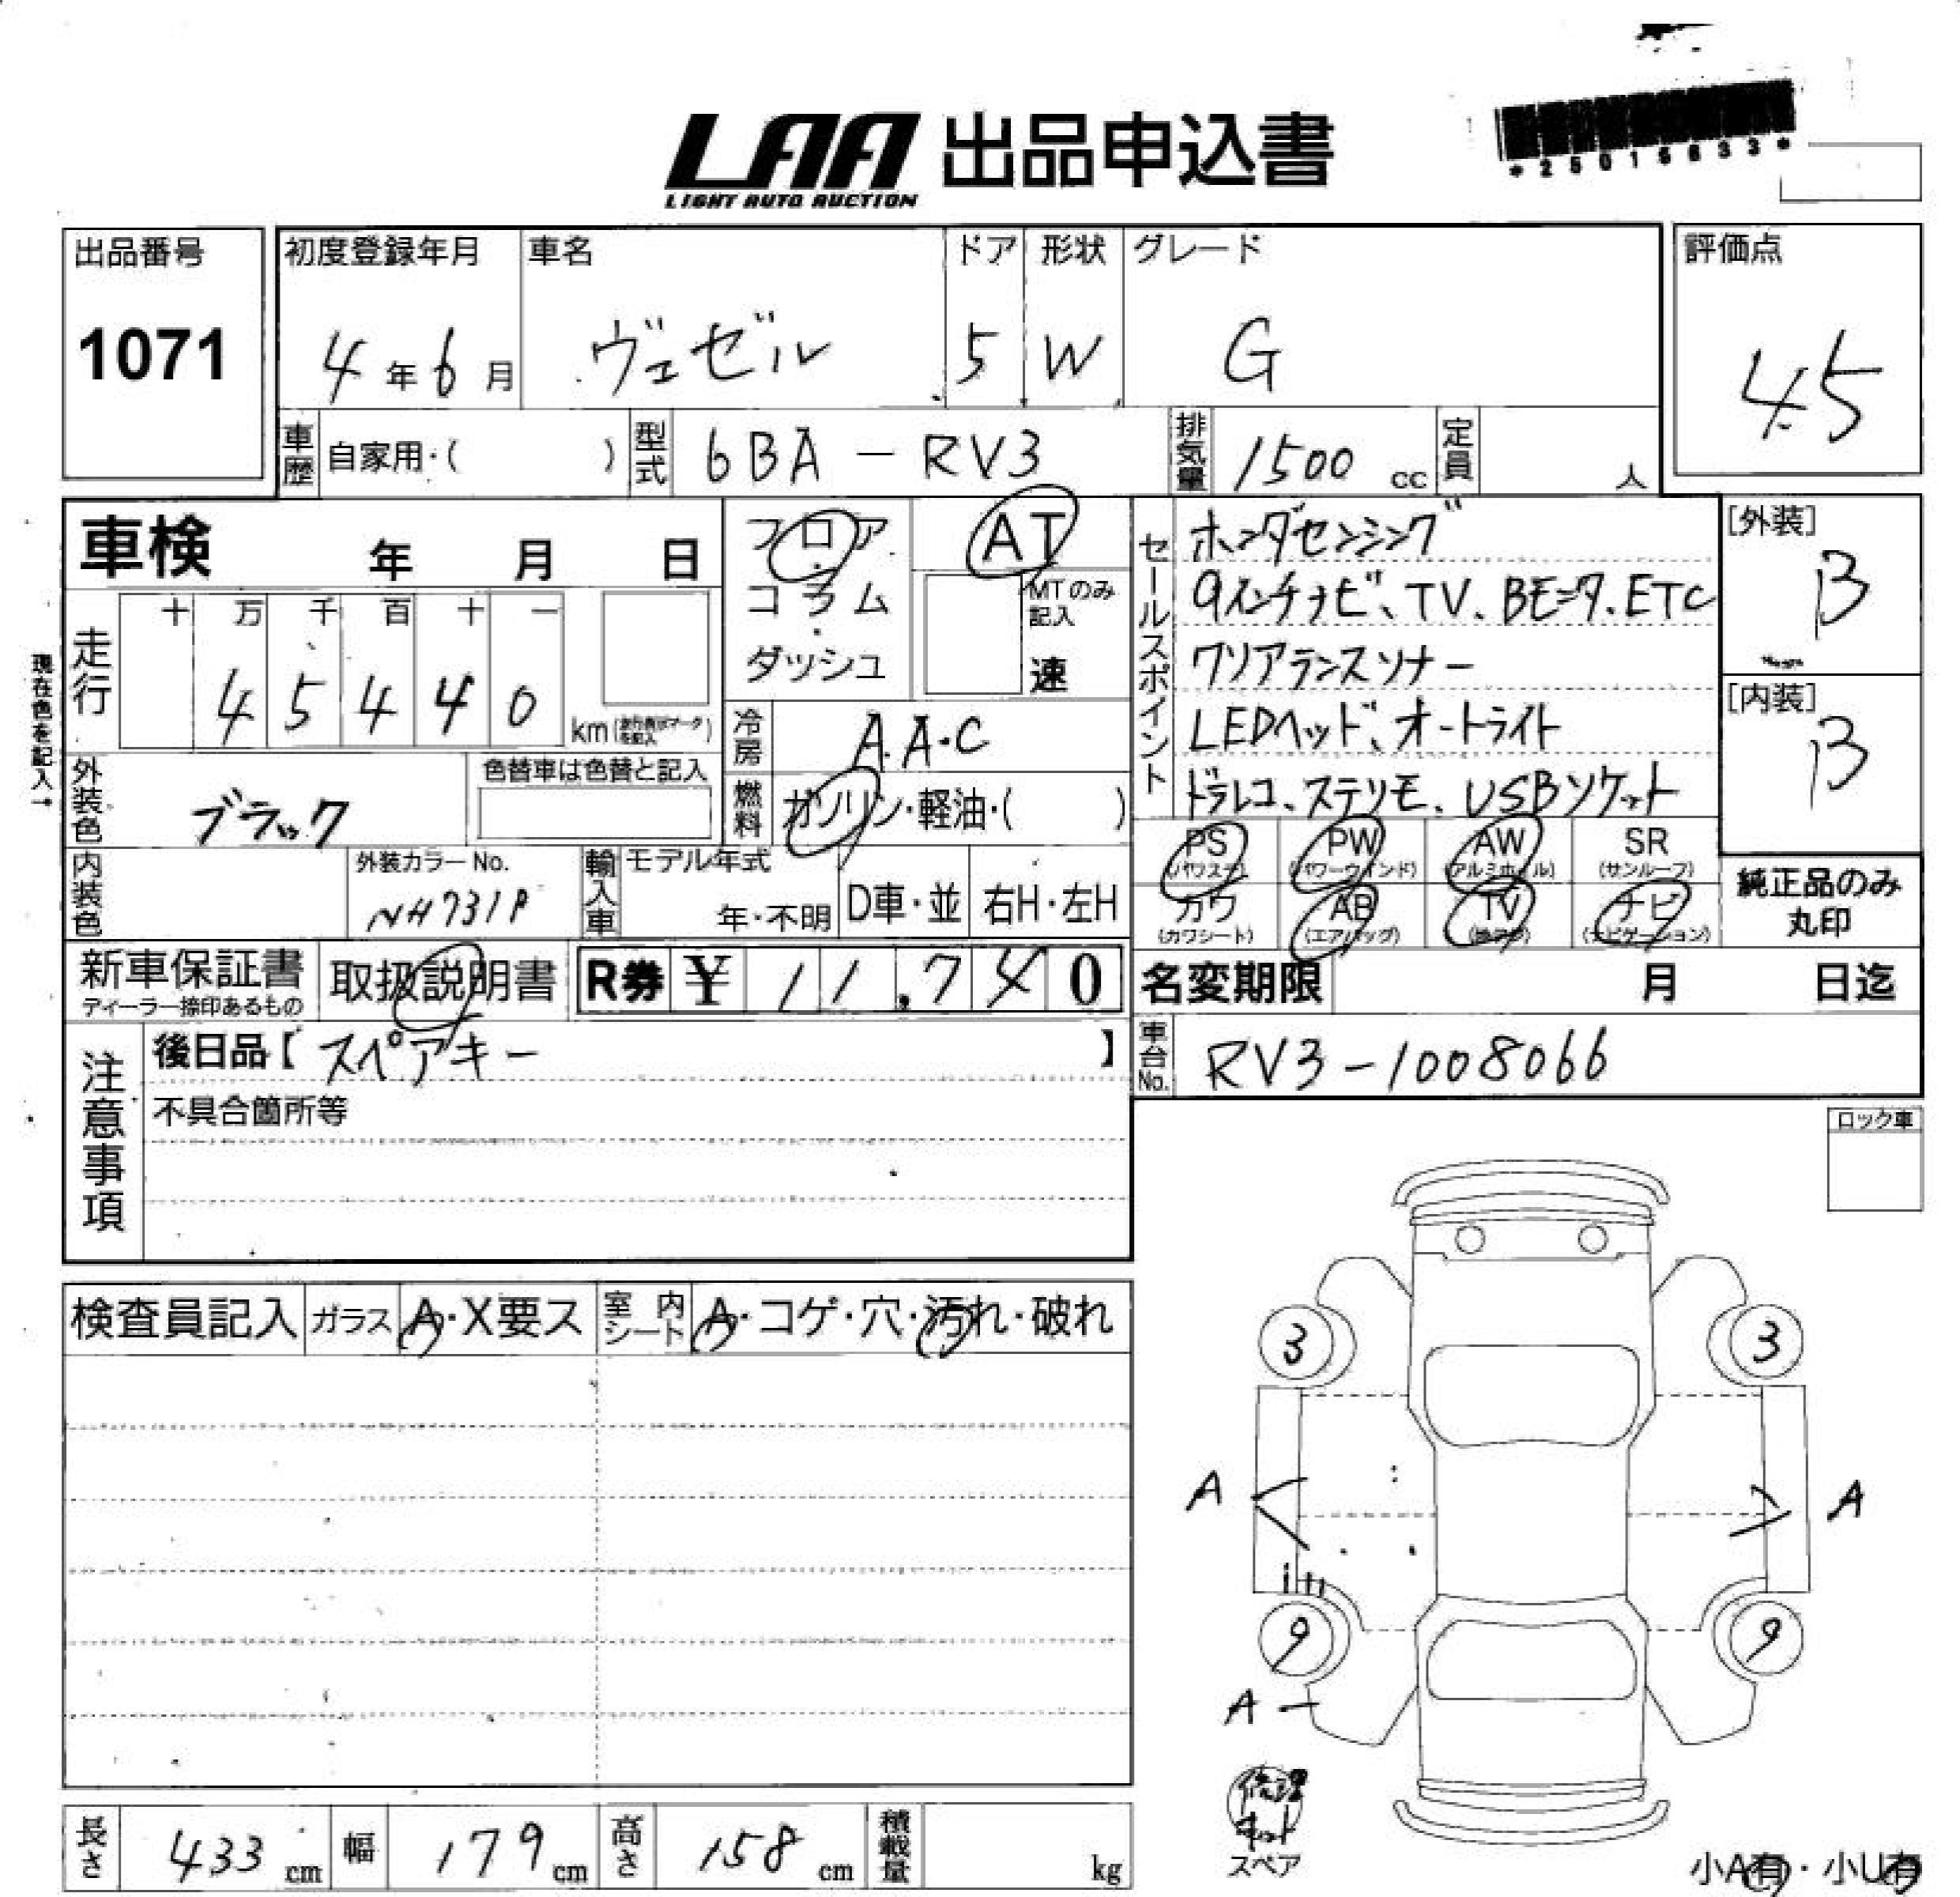 LAA 出品申込書
LIGHT AUTO AUCTION
*25015633*
出品番号
1071
初度登録年月 車名 ドア 形状 グレード
4年6月 ヴェゼル 5 W G
評価点
4.5
車歴 自家用・( ) 型式 6BA-RV3 排気量 1500 cc 定員 人
車検 年 月 日
フロア
コラム
ダッシュ
AT
MTのみ記入
速
走行 十 万 千 百 十 一
4 5 4 4 0 km
現在色を記入→
冷房 A.A.C
外装色 ブラック
色替車は色替と記入
燃料 ガソリン・軽油・( )
内装色
外装カラーNo.
NH731P
輸入車 モデル年式
年・不明 D車・並 右H・左H
セールスポイント
ホンダセンシング
9インチナビ、TV、Bモニタ、ETC
クリアランスソナー
LEDヘッド、オートライト
ドラレコ、ステリモ、USBソケット
[外装]
B
[内装]
B
PS PW AW SR
(パワステ) (パワーウインド) (アルミホイル) (サンルーフ)
カワ AB TV ナビ
(カワシート) (エアバッグ) (ナビゲーション)
純正品のみ
丸印
新車保証書
ディーラー捺印あるもの
取扱説明書
R券 ¥ 11.740
名変期限 月 日迄
車台No. RV3-1008066
注意事項
後日品【 スペアキー 】
不具合箇所等
ロック車
検査員記入 ガラス A・X要ス 室内シート A・コゲ・穴・汚れ・破れ
3 3
A A
9 9
A
修理
キット
スペア
長さ 433 cm 幅 179 cm 高さ 158 cm 積載量 kg
小A有・小U有